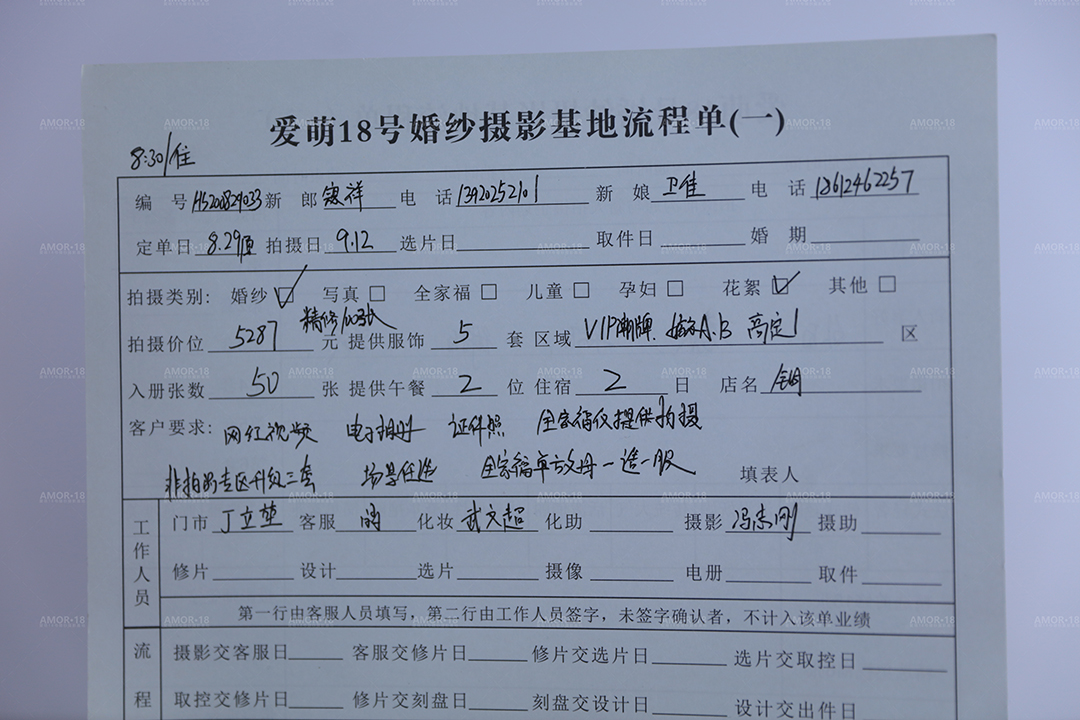 爱萌18号婚纱摄影基地流程单(一)
8:30/住
编 号 HS200829033 新 郎 祥 电 话 13920252101 新 娘 卫佳 电 话 18612462257
定单日 8.29 拍摄日 9.12 选片日 取件日 婚 期
拍摄类别: 婚纱 写真 全家福 儿童 孕妇 花絮 其他
精修100张
拍摄价位 5287 元 提供服饰 5 套 区域 VIP潮牌 A.B 高定1 区
入册张数 50 张 提供午餐 2 位 住宿 2 日 店名
客户要求: 网红视频 电子相册 证件照 全家福仅提供拍摄
非拍的专区升级三套 场景任选 全家福单方父母一造一服 填表人
工作人员
门市 丁立堃 客服 化妆 武文超 化助 摄影 冯志刚 摄助
修片 设计 选片 摄像 电册 取件
第一行由客服人员填写，第二行由工作人员签字，未签字确认者，不计入该单业绩
流程
摄影交客服日 客服交修片日 修片交选片日 选片交取控日
取控交修片日 修片交刻盘日 刻盘交设计日 设计交出件日